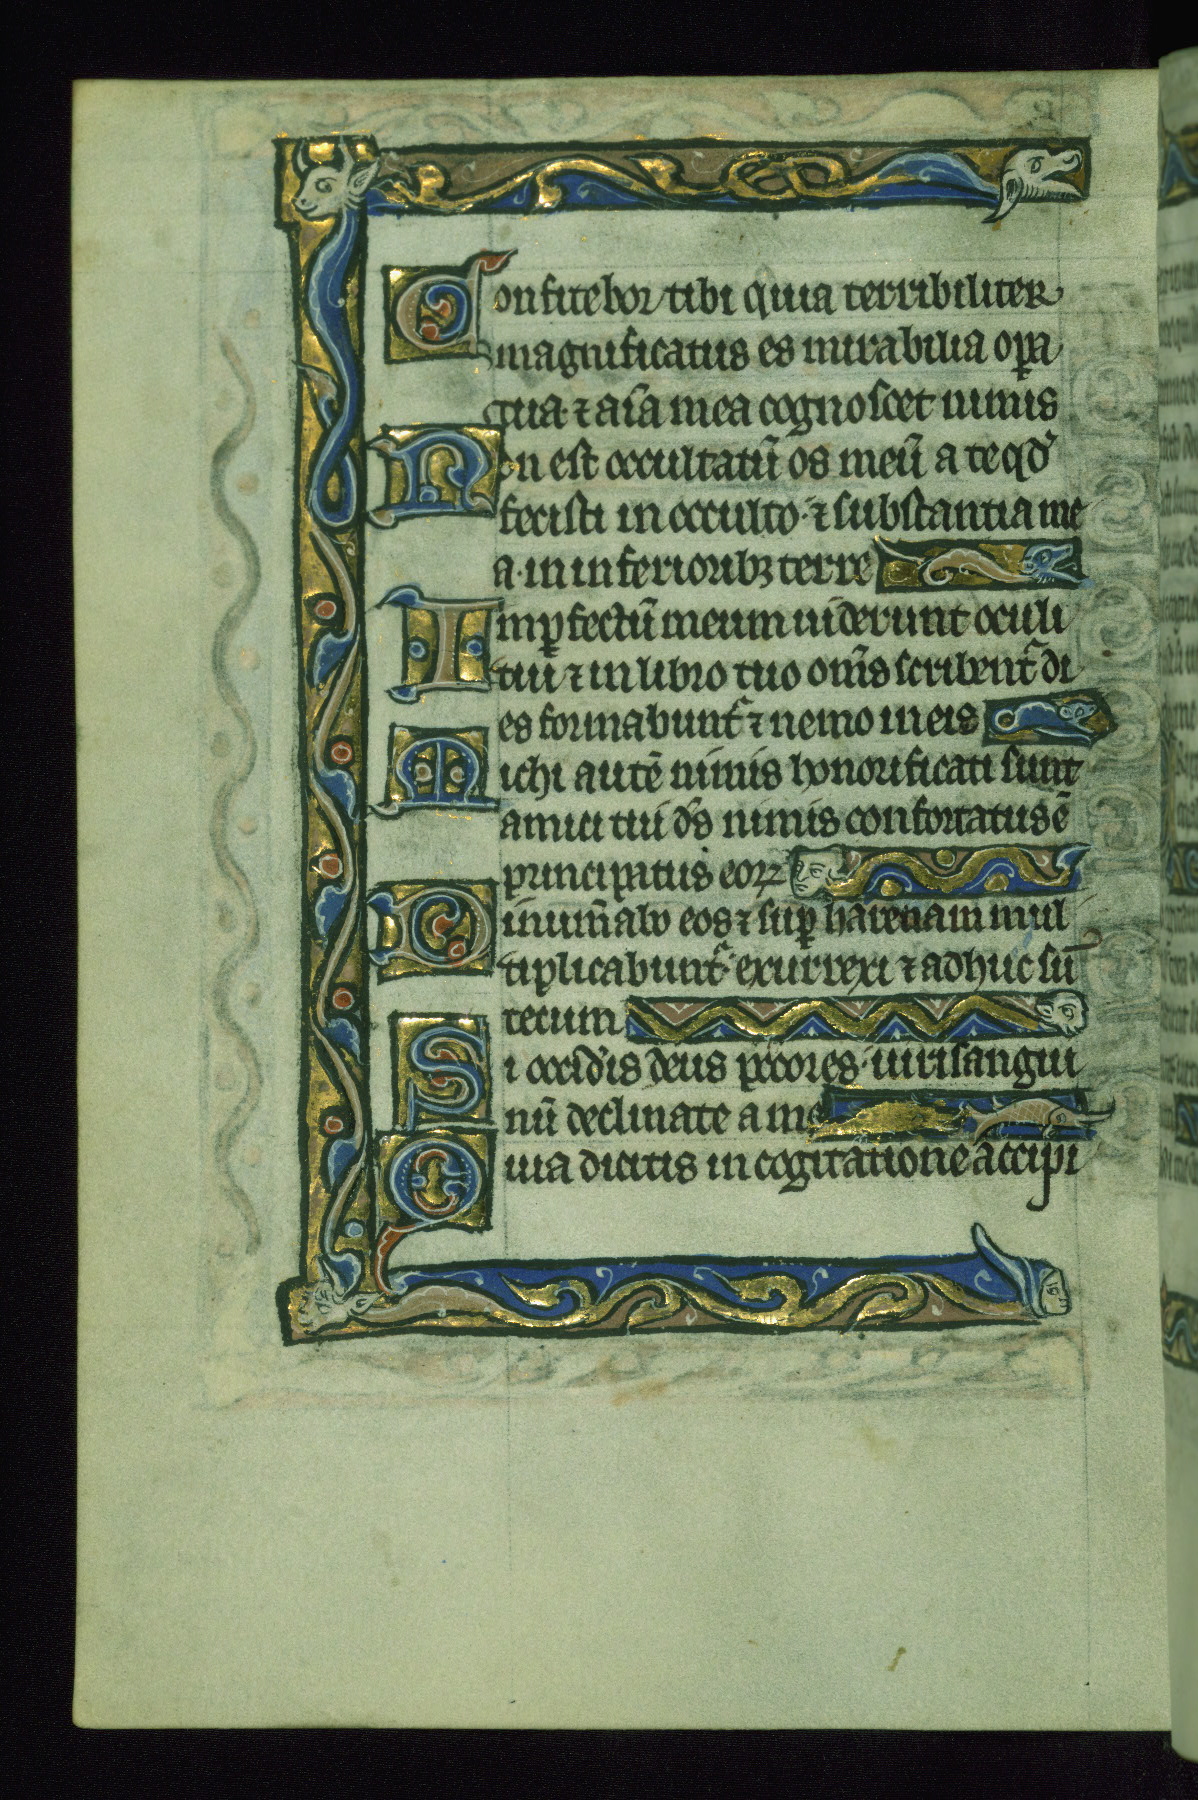 Confitebor tibi quia terribiliter
magnificatus es mirabilia op̲a
tua· ⁊ aīa mea cognoscet nimis
Non est occultatū os meū a te qd̓
fecisti in occulto· ⁊ substantia me
a· in inferiorib; terre
Imp̲fectū meum uiderunt oculi
tui ⁊ in libro tuo om̄s scribent᷑ di
es formabunt᷑ ⁊ nemo in eis
Michi autē nimis honorificati sunt
amici tui d̓s nimis confortatus ē
principatus eoꝝ
Dinum̄abo eos ⁊ sup̲ harenam mul
tiplicabunt᷑ exurrexi ⁊ adhuc sū
tecum
Si occid̓is deus pc̄cores· uiri sangui
nū declinate a me
Quia dicitis in cogitatione accipi